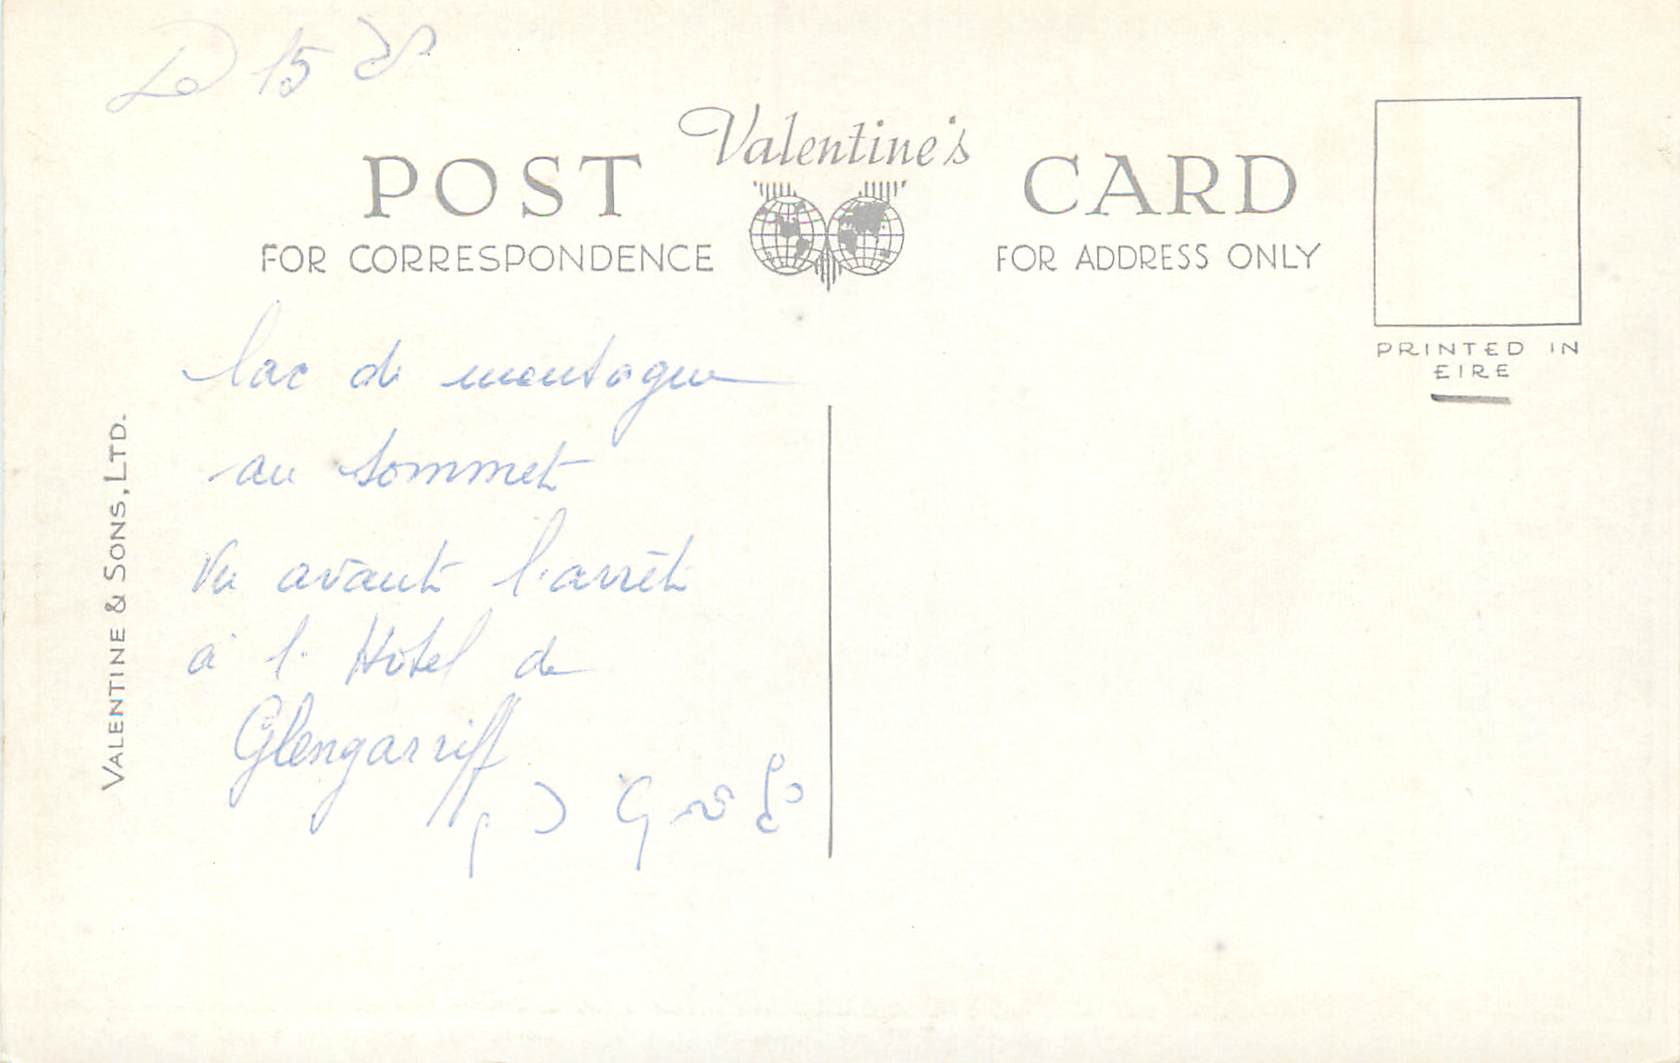 Le 15
Valentine's
POST CARD
FOR CORRESPONDENCE
FOR ADDRESS ONLY
PRINTED IN
EIRE
VALENTINE & SONS, LTD.
lac de montagne
au sommet
Vu avant l'arrêt
à l'Hôtel de
Glengarriff